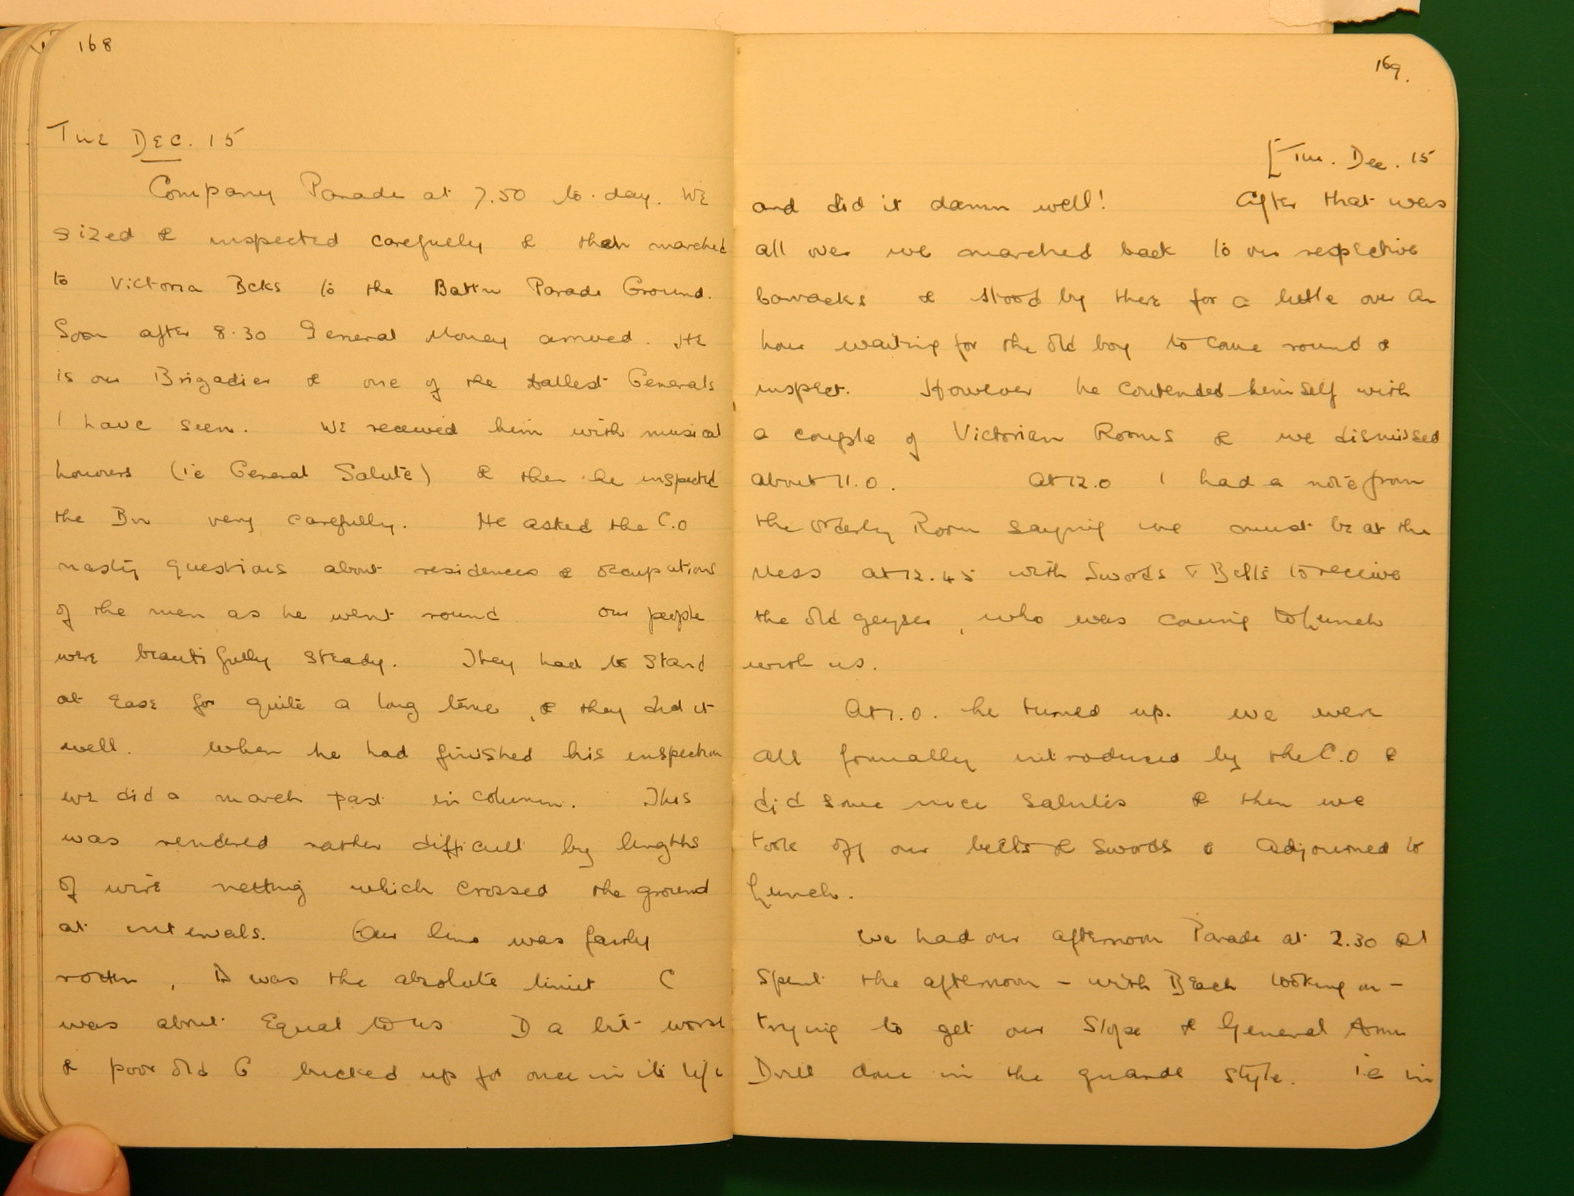 168
TUE DEC. 15
Company Parade at 7.50 to-day. We
sized & inspected carefully & then marched
to Victoria Bcks to the Battn Parade Ground.
Soon after 8.30 General Money arrived. He
is our Brigadier & one of the tallest Generals
I have seen. We received him with musical
honours (ie General Salute) & then he inspected
the Bn very carefully. He asked the C.O
nasty questions about residences & occupations
of the men as he went round our people
were beautifully steady. They had to stand
at ease for quite a long time, & they did it
well. When he had finished his inspection
we did a march past in column. This
was rendered rather difficult by lengths
of wire netting which crossed the ground
at intervals. Our line was fairly
rotten, B was the absolute limit C
was about equal to us D a bit worse
& poor old G bucked up for once in its life
169.
[Tue. Dec. 15
and did it damn well! After that was
all over we marched back to our respective
barracks & stood by there for a little over an
hour waiting for the old boy to come round &
inspect. However he contended himself with
a couple of Victorian Rooms & we dismissed
about 11.0. At 12.0 I had a note from
the Orderly Room saying we must be at the
Mess at 12.45 with Swords & Belts to receive
the old geyser, who was coming to lunch
with us.
At 1.0. he turned up. We were
all formally introduced by the C.O &
did some nice salutes & then we
took off our belts & swords & adjourned to
lunch.
We had our afternoon Parade at 2.30 &
spent the afternoon - with Beach looking on -
trying to get our Slope & General Arms
Drill done in the guards style. ie in